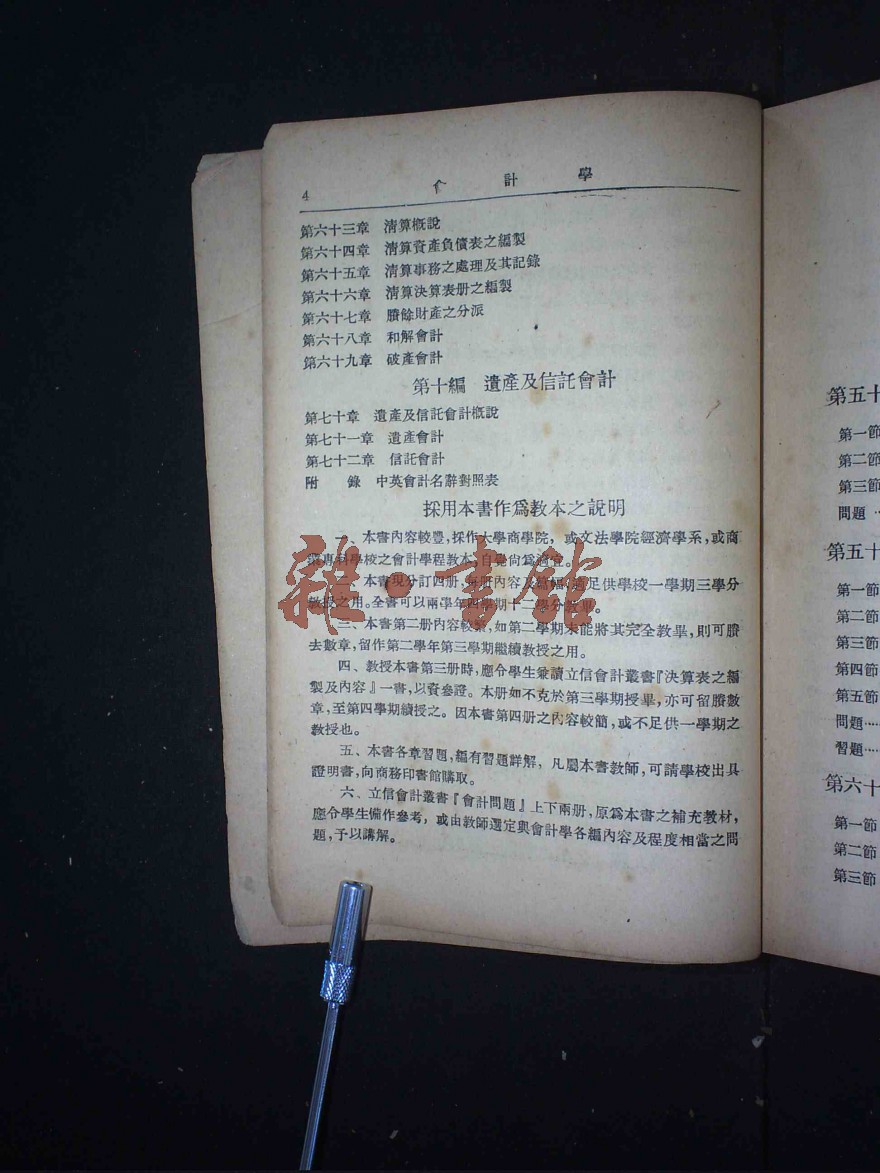 4
會計學
第六十三章 清算概說
第六十四章 清算資產負債表之編製
第六十五章 清算事務之處理及其記錄
第六十六章 清算決算表册之編製
第六十七章 賸餘財產之分派
第六十八章 和解會計
第六十九章 破產會計
第十編 遺產及信託會計
第七十章 遺產及信託會計概說
第七十一章 遺產會計
第七十二章 信託會計
附 錄 中英會計名辭對照表
採用本書作爲教本之說明
一、本書內容較豐,採作大學商學院,或文法學院經濟學系,或商
業專科學校之會計學程教本,自覺尚爲適宜。
二、本書現分訂四册,每册內容及篇幅,適足供學校一學期三學分
教授之用。全書可以兩學年四學期十二學分教畢。
三、本書第二册內容較繁,如第二學期未能將其完全教畢,則可賸
去數章,留作第二學年第三學期繼續教授之用。
四、教授本書第三册時,應令學生兼讀立信會計叢書『決算表之編
製及內容』一書,以資參證。本册如不克於第三學期授畢,亦可留賸數
章,至第四學期續授之。因本書第四册之內容較簡,或不足供一學期之
教授也。
五、本書各章習題,編有習題詳解,凡屬本書教師,可請學校出具
證明書,向商務印書館購取。
六、立信會計叢書『會計問題』上下兩册,原爲本書之補充教材,
應令學生備作參考,或由教師選定與會計學各編內容及程度相當之問
題,予以講解。
雜·書館
第五十
第一節
第二節
第三節
問題
第五十
第一節
第二節
第三節
第四節
第五節
問題
習題
第六十
第一節
第二節
第三節